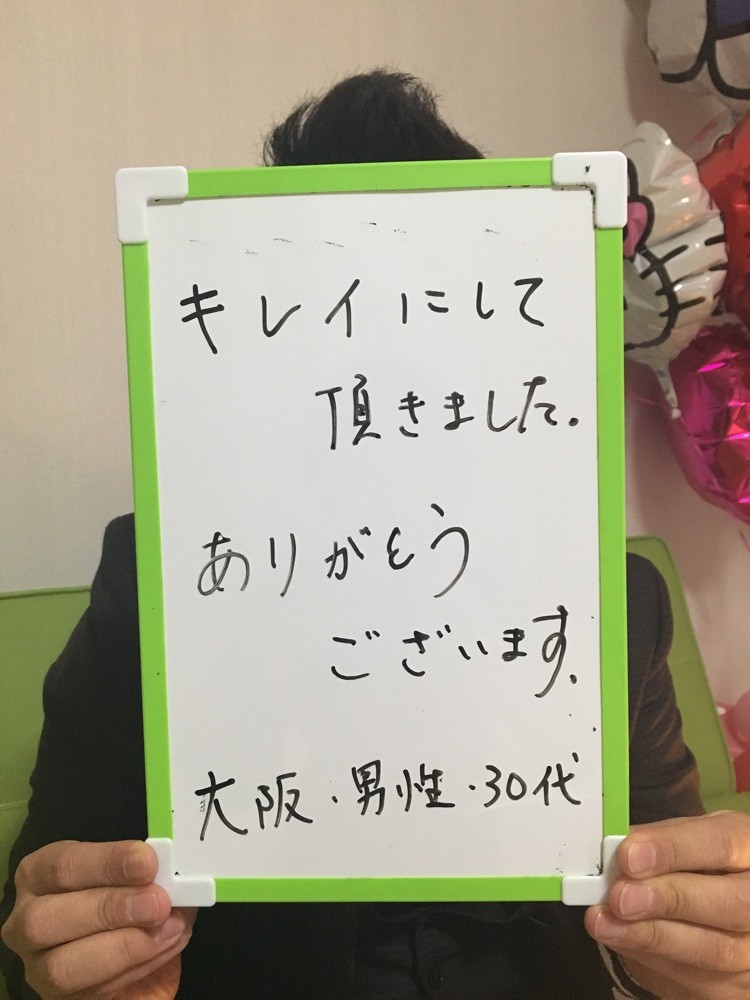 キレイにして
頂きました.
ありがとう
ございます.
大阪・男性・30代